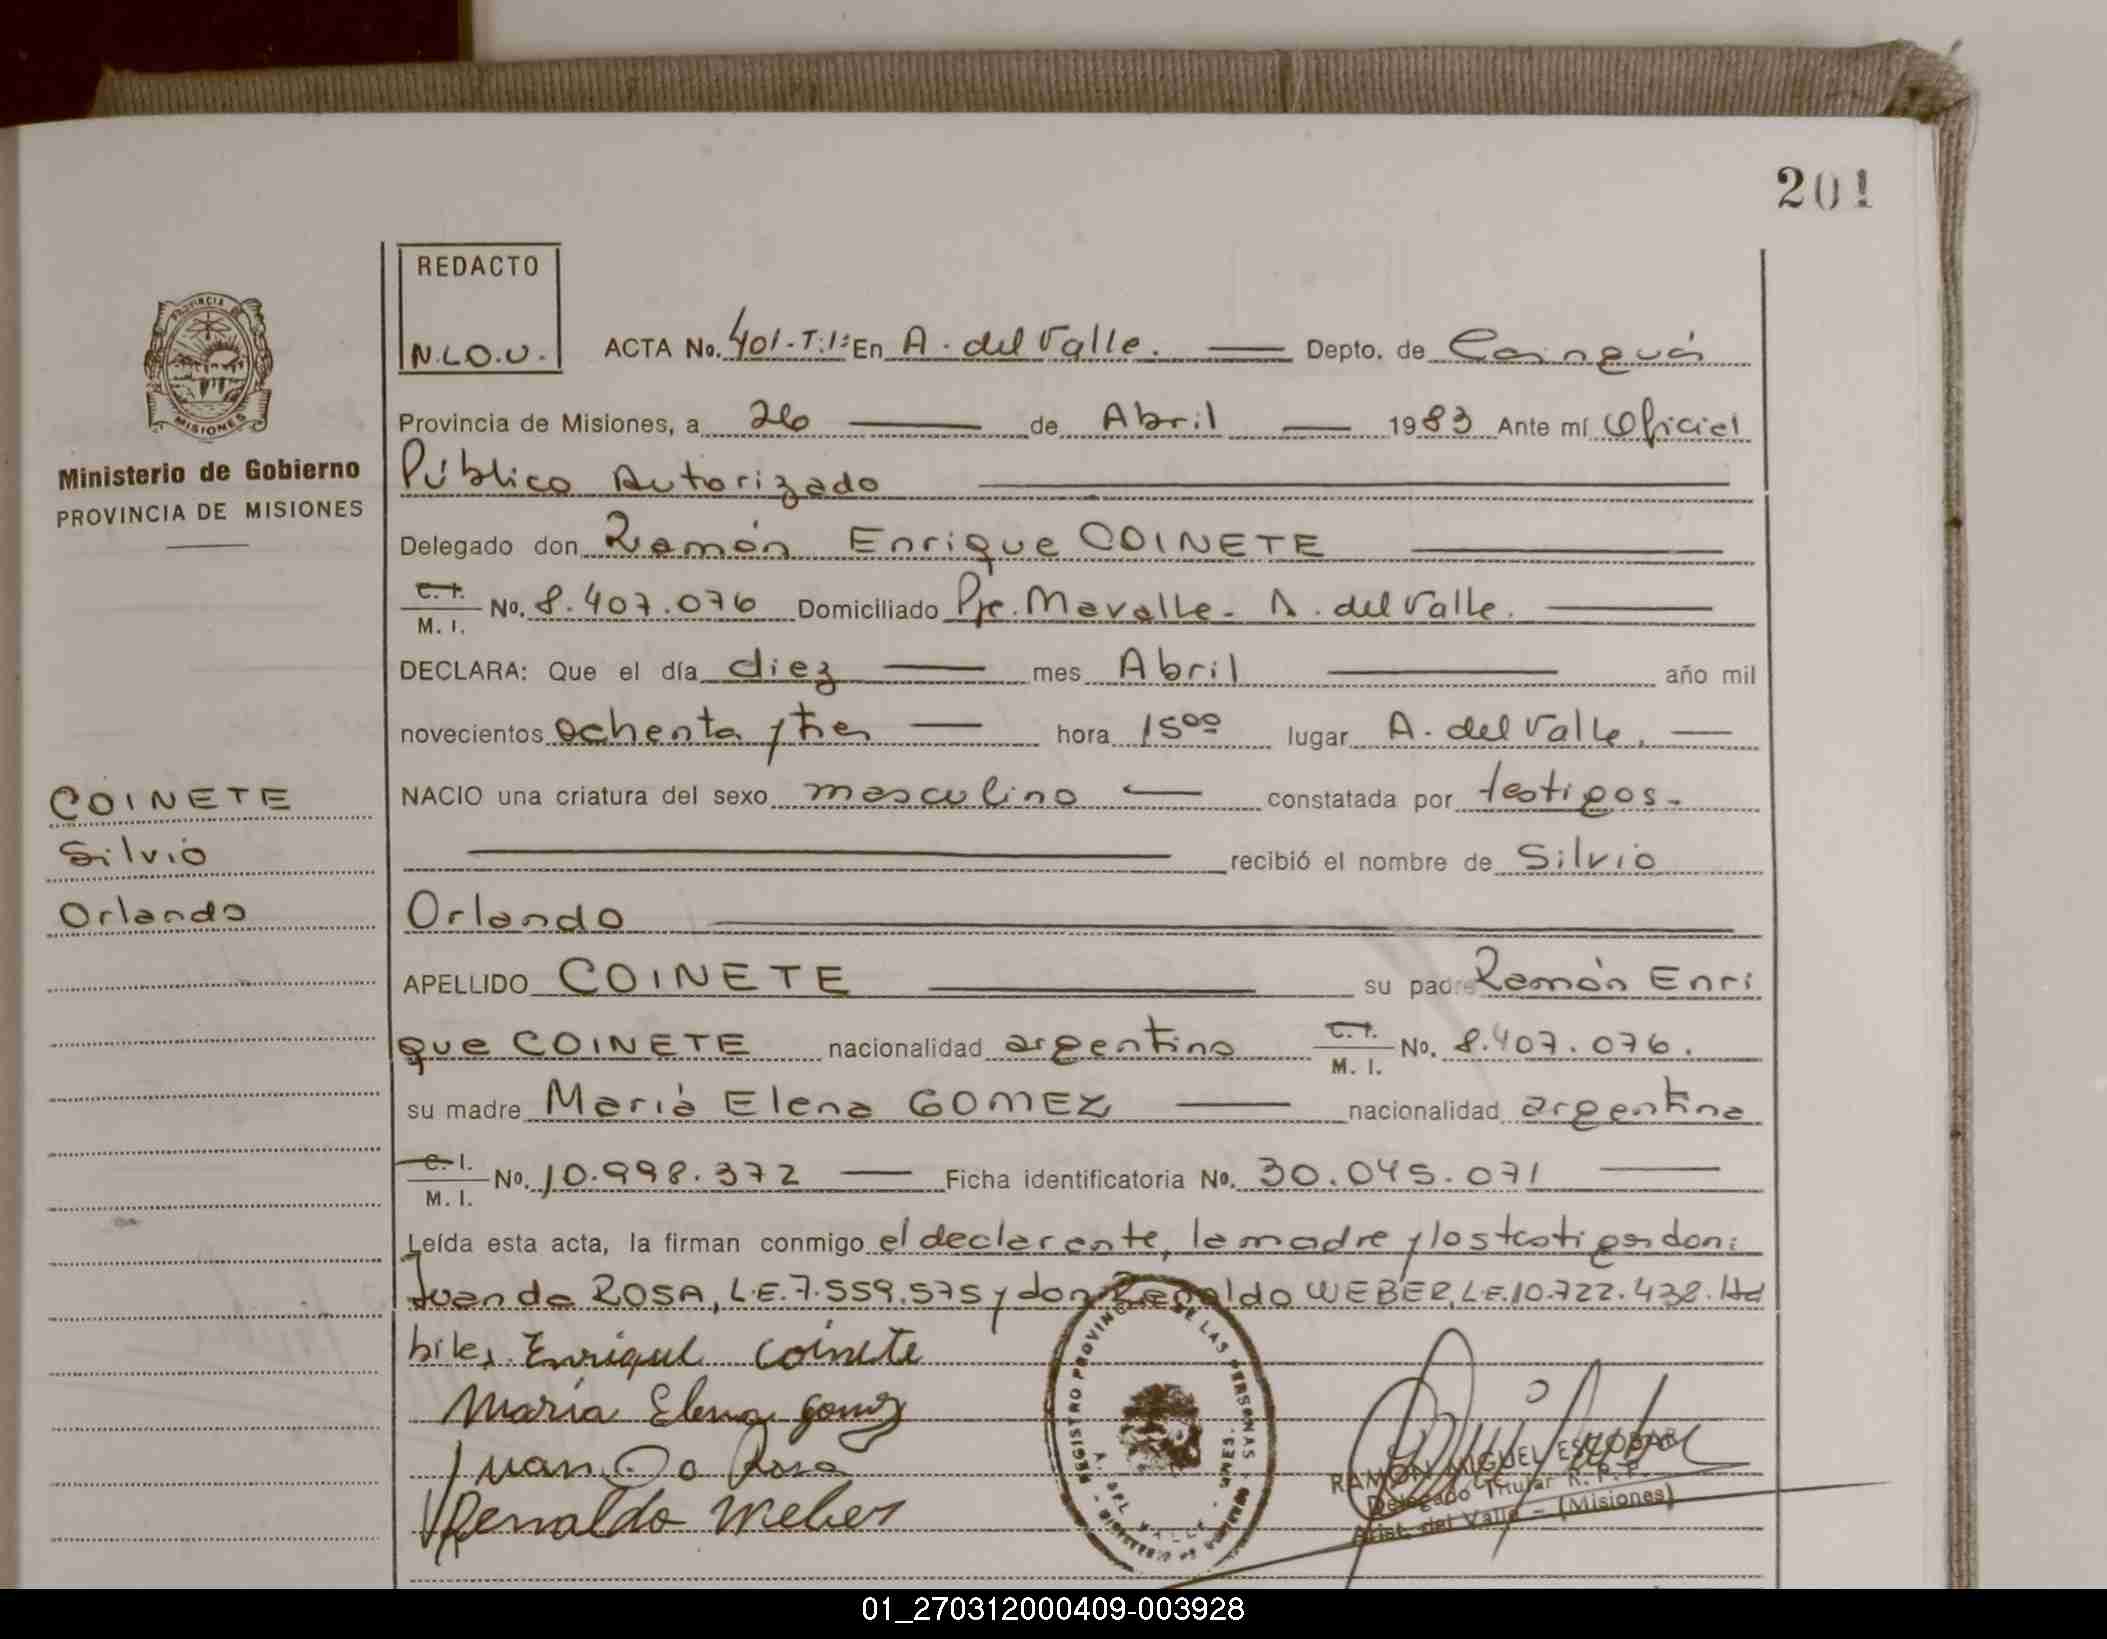 201
REDACTO
N.L.O.U.
ACTA No. 401-T.1: En A. del Valle. Depto. de Cainguás
Provincia de Misiones, a 26 de Abril 1983 Ante mí Oficial
Público Autorizado
Delegado don Ramón Enrique COINETE
C. I. M. I. No. 8.407.076 Domiciliado Pje. Mavalle - A. del Valle.
DECLARA: Que el día diez mes Abril año mil
novecientos ochenta y tres hora 15 00 lugar A. del Valle.
NACIO una criatura del sexo masculino constatada por testigos.
recibió el nombre de Silvio
Orlando
APELLIDO COINETE su padre Ramón Enri
que COINETE nacionalidad argentino C. I. M. I. No. 8.407.076.
su madre María Elena GOMEZ nacionalidad argentina
C. I. M. I. No. 10.998.372 Ficha identificatoria No. 30.045.071
Leída esta acta, la firman conmigo el declarante, la madre y los testigos don:
Juan da ROSA, L.E. 7.559.575 y don Renaldo WEBER, L.E. 10.722.438. Há
biles. Enrique Coinete
María Elena Gomez
Juan Do Rosa
Renaldo Weber
PROVINCIA
MISIONES
Ministerio de Gobierno
PROVINCIA DE MISIONES
COINETE
Silvio
Orlando
REGISTRO PROVINCIAL DE LAS PERSONAS
A. DEL VALLE
RAMON MIGUEL ESCOBAR
Delegado Titular R. P. P.
Arist. del Valle - (Misiones)
01_270312000409-003928